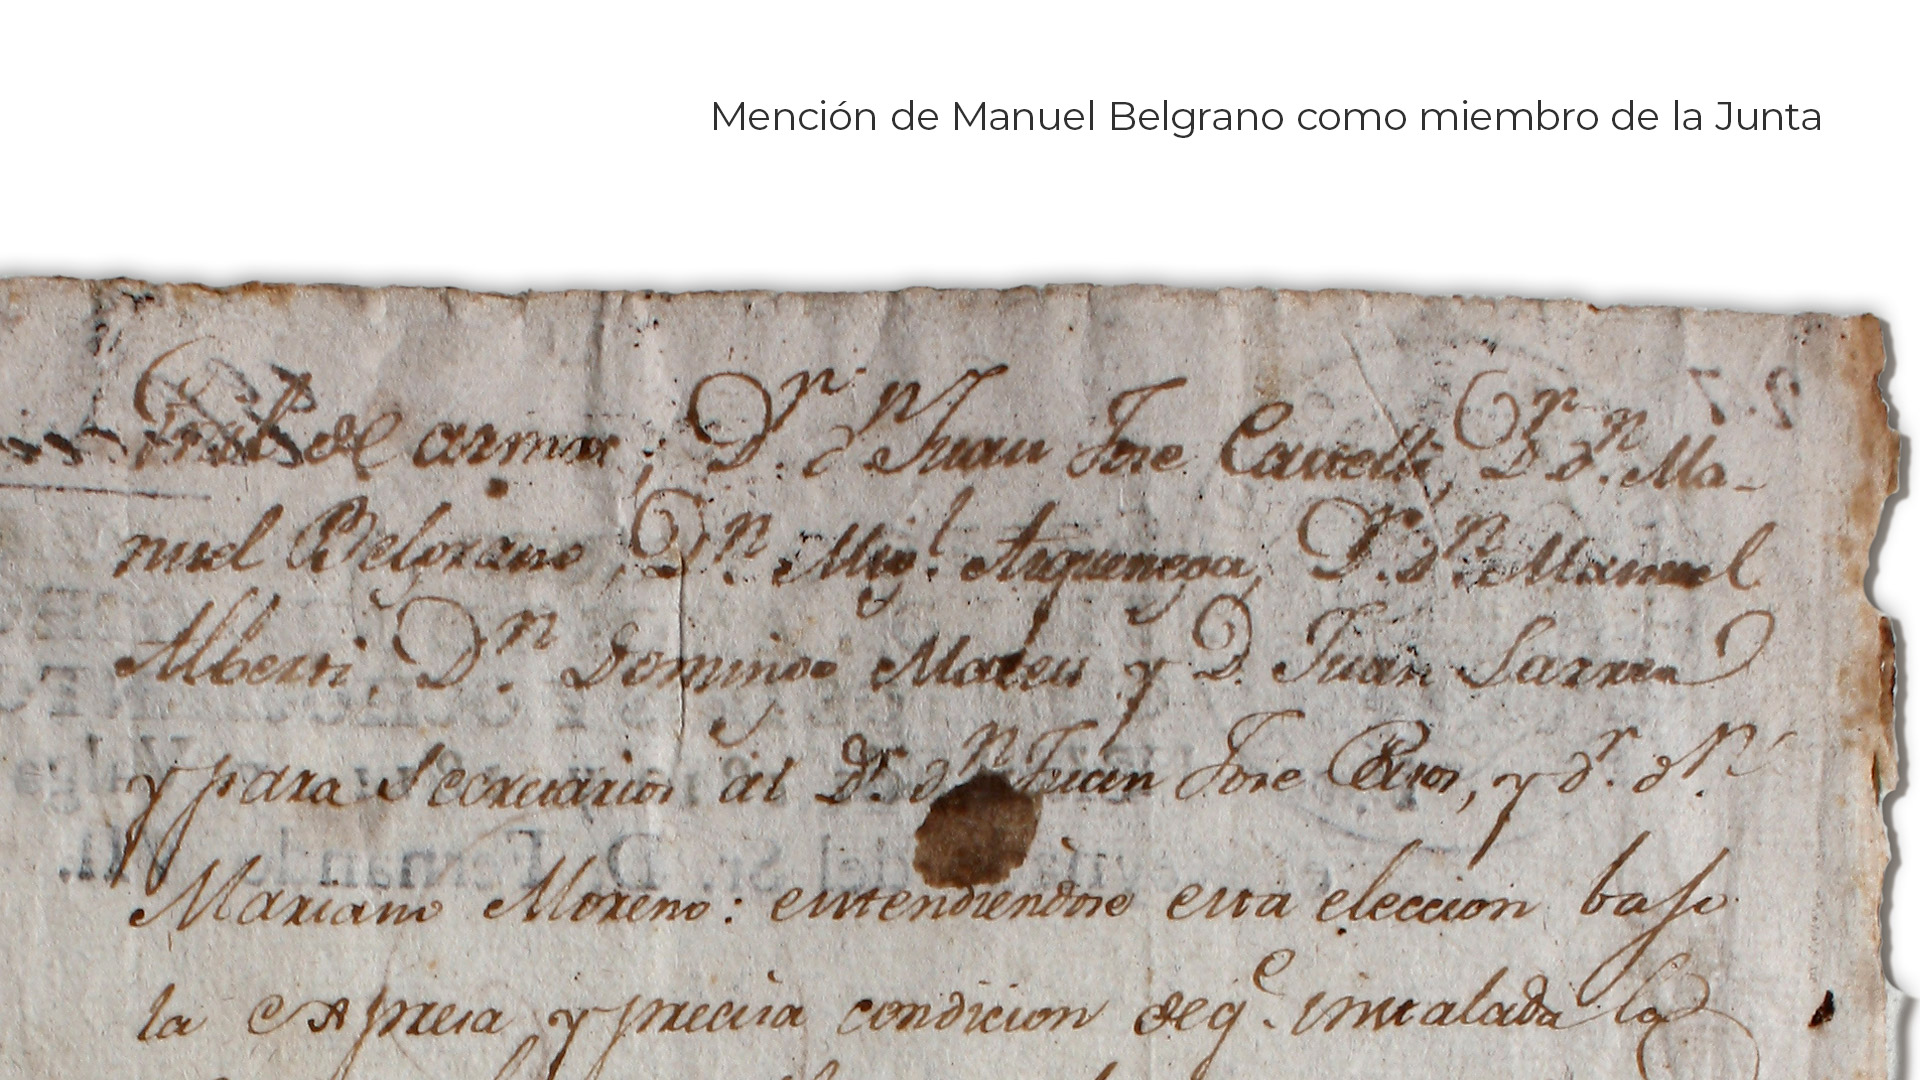 Mención de Manuel Belgrano como miembro de la Junta
gral de armas; Dr. dn Juan Jose Castelli, Dr. dn. Ma-
nuel Belgrano, Dn. Migl. Asquenega, Dr. dn. Manuel
Alberti, Dn. Domingo Mateu y D. Juan Larrea
y para Secretarios al Dr. dn Juan Jose Paso, y dr. dn.
Mariano Moreno: entendiendose esta eleccion bajo
la expresa y precisa condicion de qe. instalada la